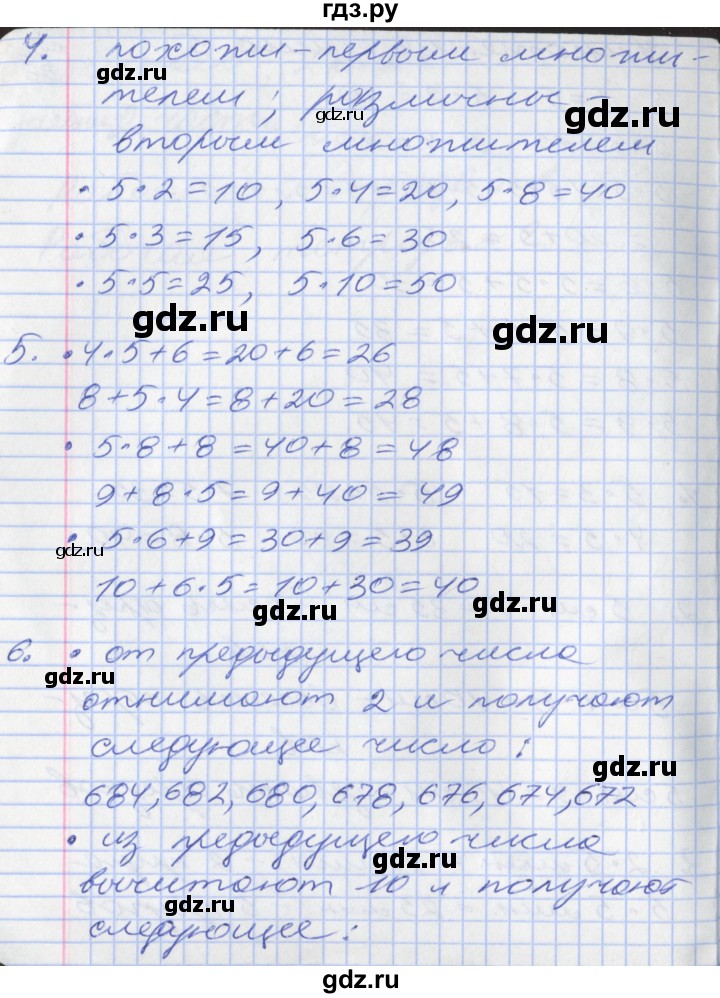 гдз.ру
4. похожи - первым множи-
gdz.ru
телем; различны -
gdz.ru
gdz.ru
вторым множителем
• 5·2=10, 5·4=20, 5·8=40
gdz.ru
• 5·3=15, 5·6=30
• 5·5=25, 5·10=50
gdz.ru
gdz.ru
5. • 4·5+6=20+6=26
8+5·4=8+20=28
• 5·8+8=40+8=48
gdz.ru
9+8·5=9+40=49
• 5·6+9=30+9=39
gdz.ru
10+6·5=10+30=40
gdz.ru
gdz.ru
6. • от предыдущего числа
gdz.ru
отнимают 2 и получают
следующее число:
gdz.ru
684, 682, 680, 678, 676, 674, 672
• из предыдущего числа
gdz.ru
вычитают 10 и получают
gdz.ru
следующее:
gdz.ru
gdz.ru